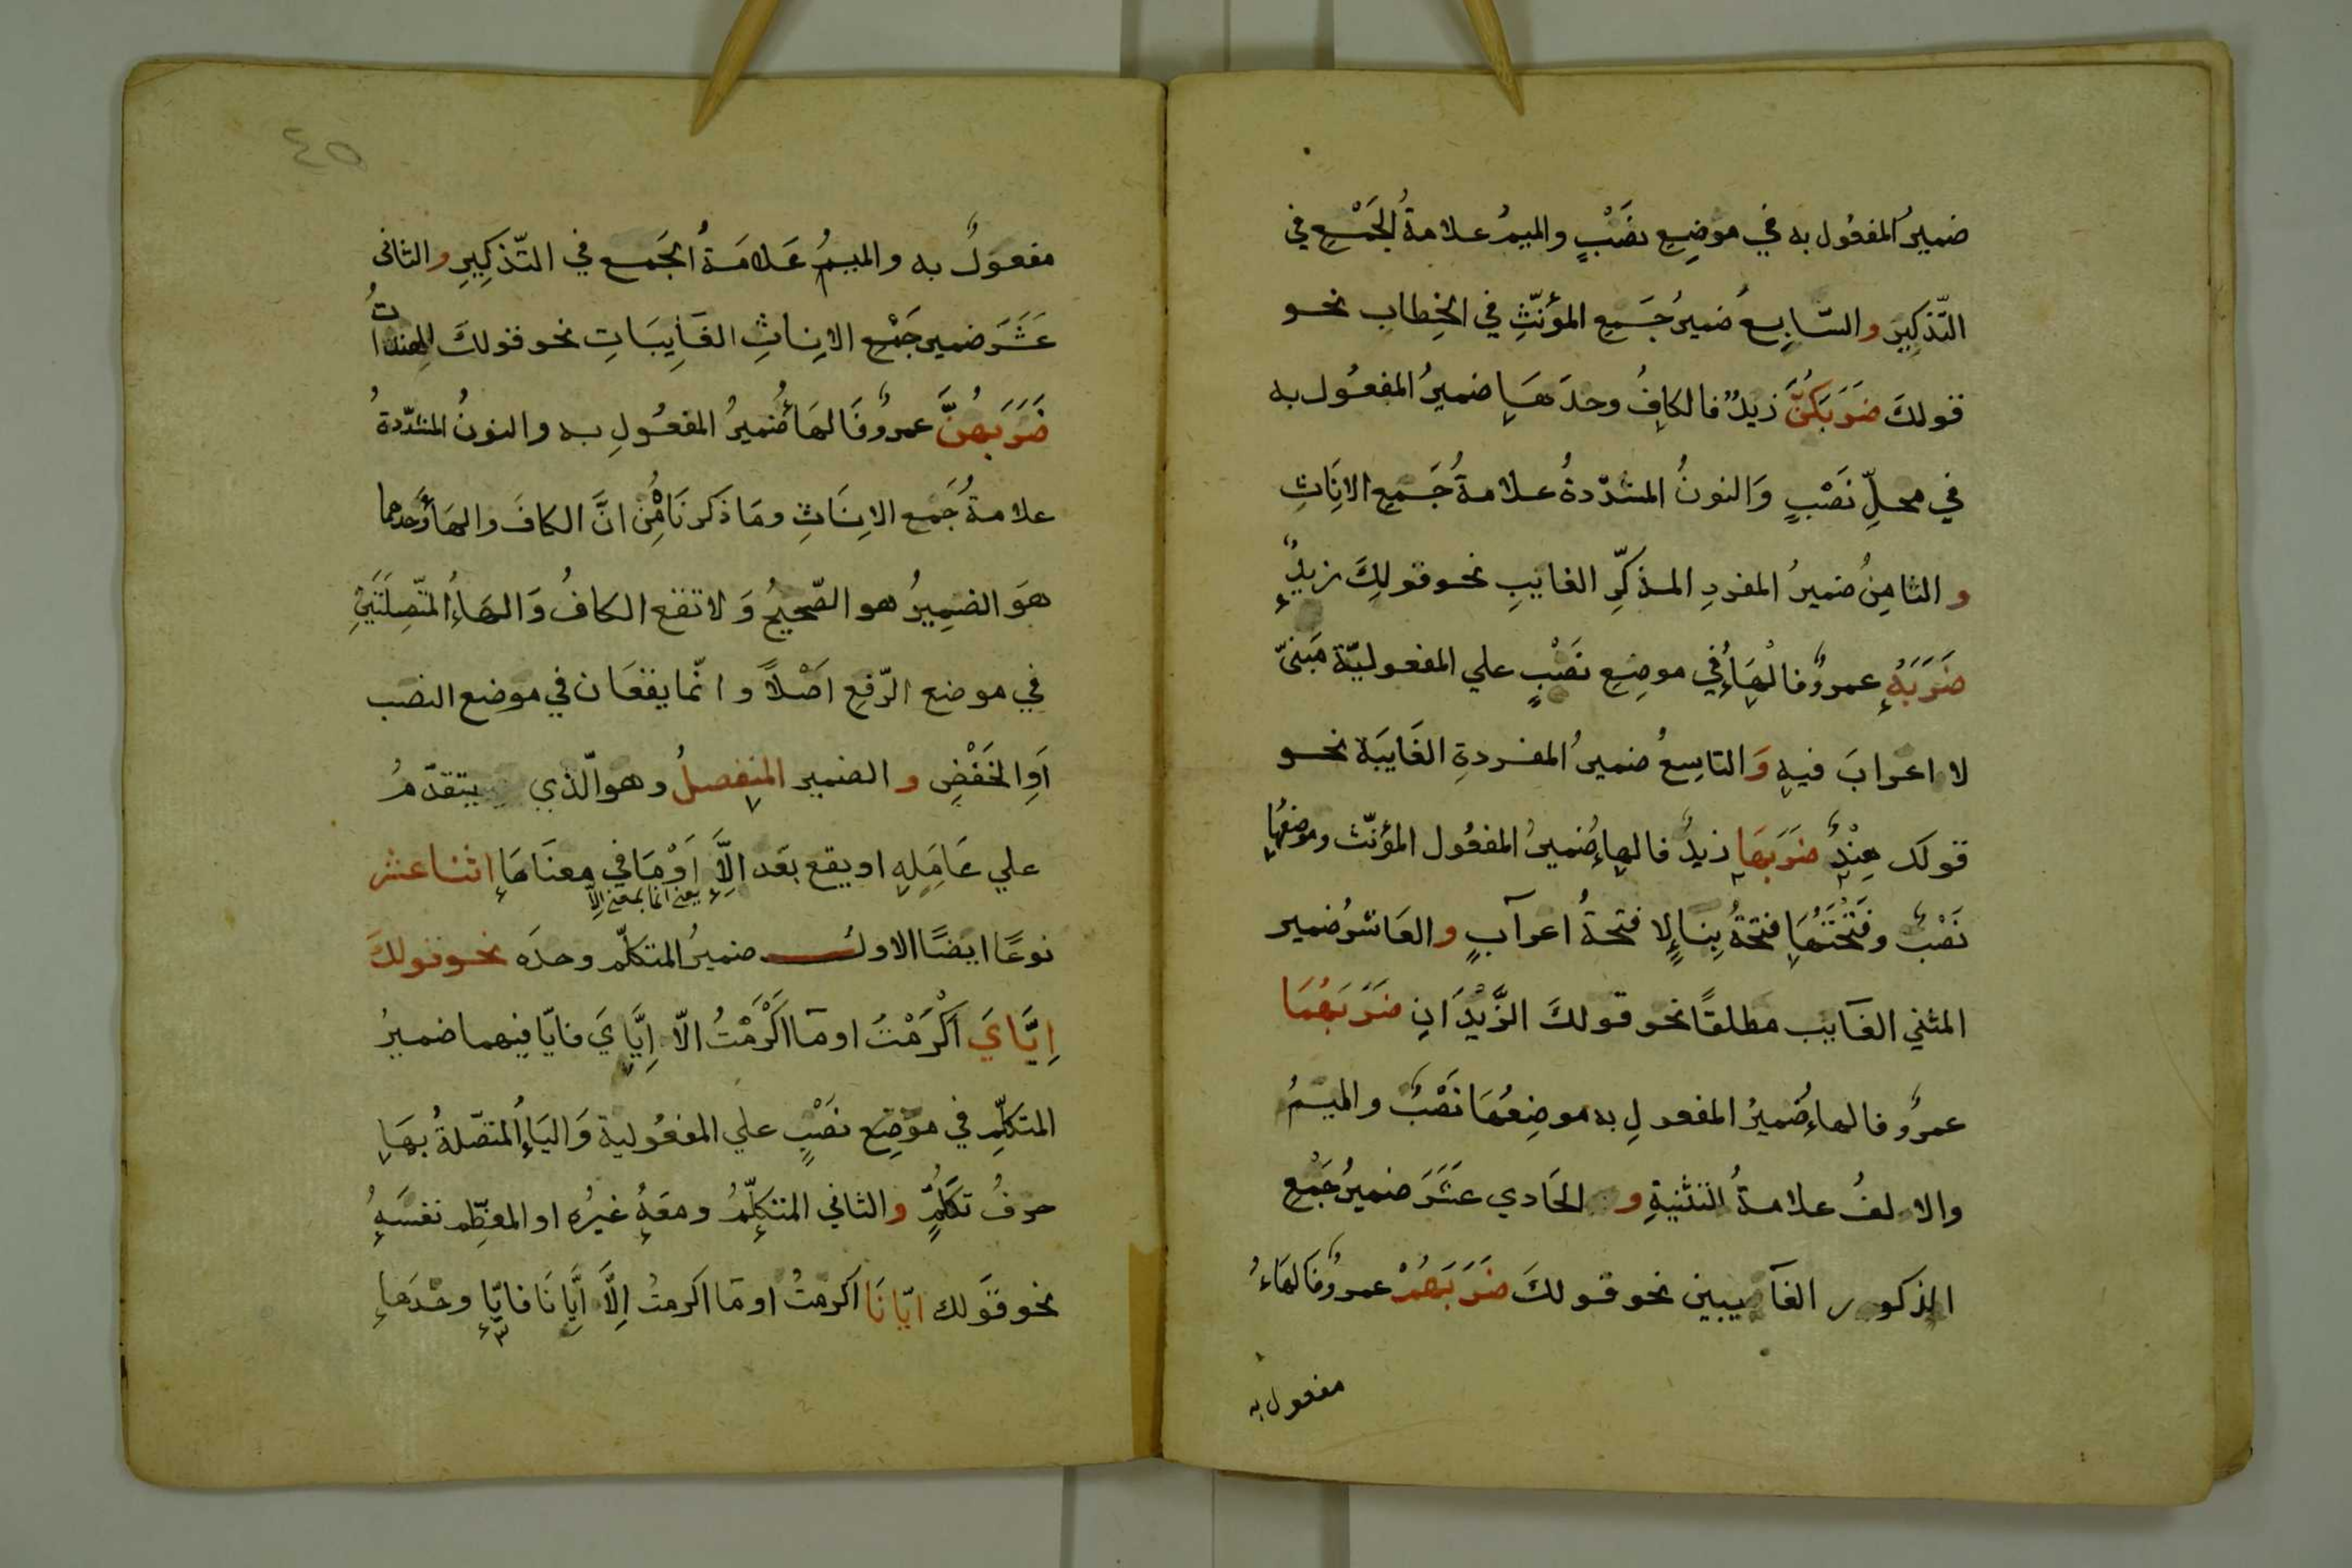 ضميرُ المفعُول به في موضِعِ نصْبٍ والميمُ علامةُ الجَمْعِ في
التّذكِيرِ والسَّابِعُ ضميرُ جَمعِ المؤنّثِ في الخِطابِ نحو
قولكَ ضَرَبَكُنَّ زيدٌ فالكافُ وحدَهَا ضميرُ المفعُول به
في محلِّ نَصْبٍ وَالنونُ المشدّدةُ علامةُ جَمعِ الاِنَاثِ
والثامِنُ ضميرُ المفردِ المذكّرِ الغايبِ نحو قولِكَ زيدٌ
ضَرَبَهُ عمروٌ فالهَاءُ في موضِعِ نَصْبٍ علي المفعوليّة مَبنىّ
لا اعرابَ فيهِ وَالتاسِعُ ضميرُ المفردةِ الغَايبَة نحو
قولك هِنْدٌ ضَرَبَهَا زيدٌ فالهاءُ ضميرُ المفعُول المؤنّث وموضعُهَا
نَصْبٌ وفَتْحَتُهَا فتحةُ بِنَاءٍ لا فتحةُ اعرآبٍ والعَاشرُ ضمير
المثني الغَايب مطلقًا نحو قولكَ الزَّيْدَانِ ضَرَبَهُمَا
عمروٌ فالهاءُ ضميرُ المفعولِ به موضِعُهَا نَصْبٌ والميمُ
والالفُ علامةُ التثنيةِ والحَادي عَشَرَ ضميرُ جَمْعِ
الذكور الغآيبين نحو قولكَ ضَرَبَهُمْ عمروٌ فَالهَاءُ
مفعول به
٤٥
مفعولٌ به والميمُ عَلامَةُ الجَمع في التّذكِيرِ والثانى
عَشَرَ ضمير جَمْعِ الاِناثِ الغَايِبَاتِ نحو قولكَ الهِنداتُ
ضَرَبَهُنَّ عمروٌ فَالهَاءُ ضميرُ المفعُولِ به والنونُ المشدّدةُ
علامةُ جَمْعِ الاِنَاثِ ومَا ذَكرنَاهُ مِن انَّ الكافَ والهَاءَ وَحدهما
هوَ الضمِيرُ هو الصّحيحُ وَلا تقع الكافُ وَالهَاءُ المتّصِلَتَيْنِ
في موضع الرّفعِ اَصْلاً وانّما يقعَان في موضع النصب
اَوِ الخَفْضِ والضمير المنفصلُ وهو الّذي يتقدّمُ
علي عَامِلِهِ او يقع بَعَد اِلاَّ اَوْ مَا في معنَاهَا اثنا عشر
يعني انما بمعني الا
نوعًا ايضًا الاولُ ضميرُ المتكلّم وحدَه نحو قولكَ
اِيَّايَ اَكْرَمْتَ او مَا اَكْرَمْتُ الاّ اِيَّايَ فايّا فيهما ضميرُ
المتكلّمِ في موَضِع نصْبٍ علي المفعُولية وَاليَاءُ المتصّلةُ بهَا
حرفُ تكلُّمٍ والثاني المتكلّمُ ومعَهُ غيرُه او المعظِّم نفسَهُ
نحو قوَلك ايّانَا اكرمتُ او مَا اكرمتُ اِلاَّ اَيَّانَا فايّا وحْدَهَا